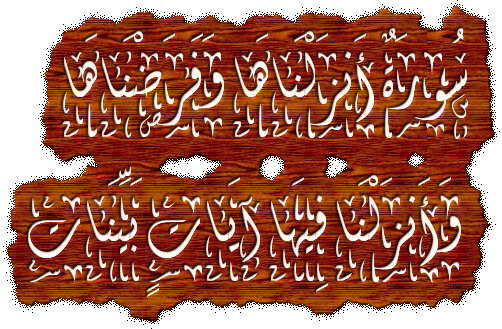 سُورَةٌ أَنزَلْنَاهَا وَفَرَضْنَاهَا
وَأَنزَلْنَا فِيهَا آيَاتٍ بَيِّنَاتٍ